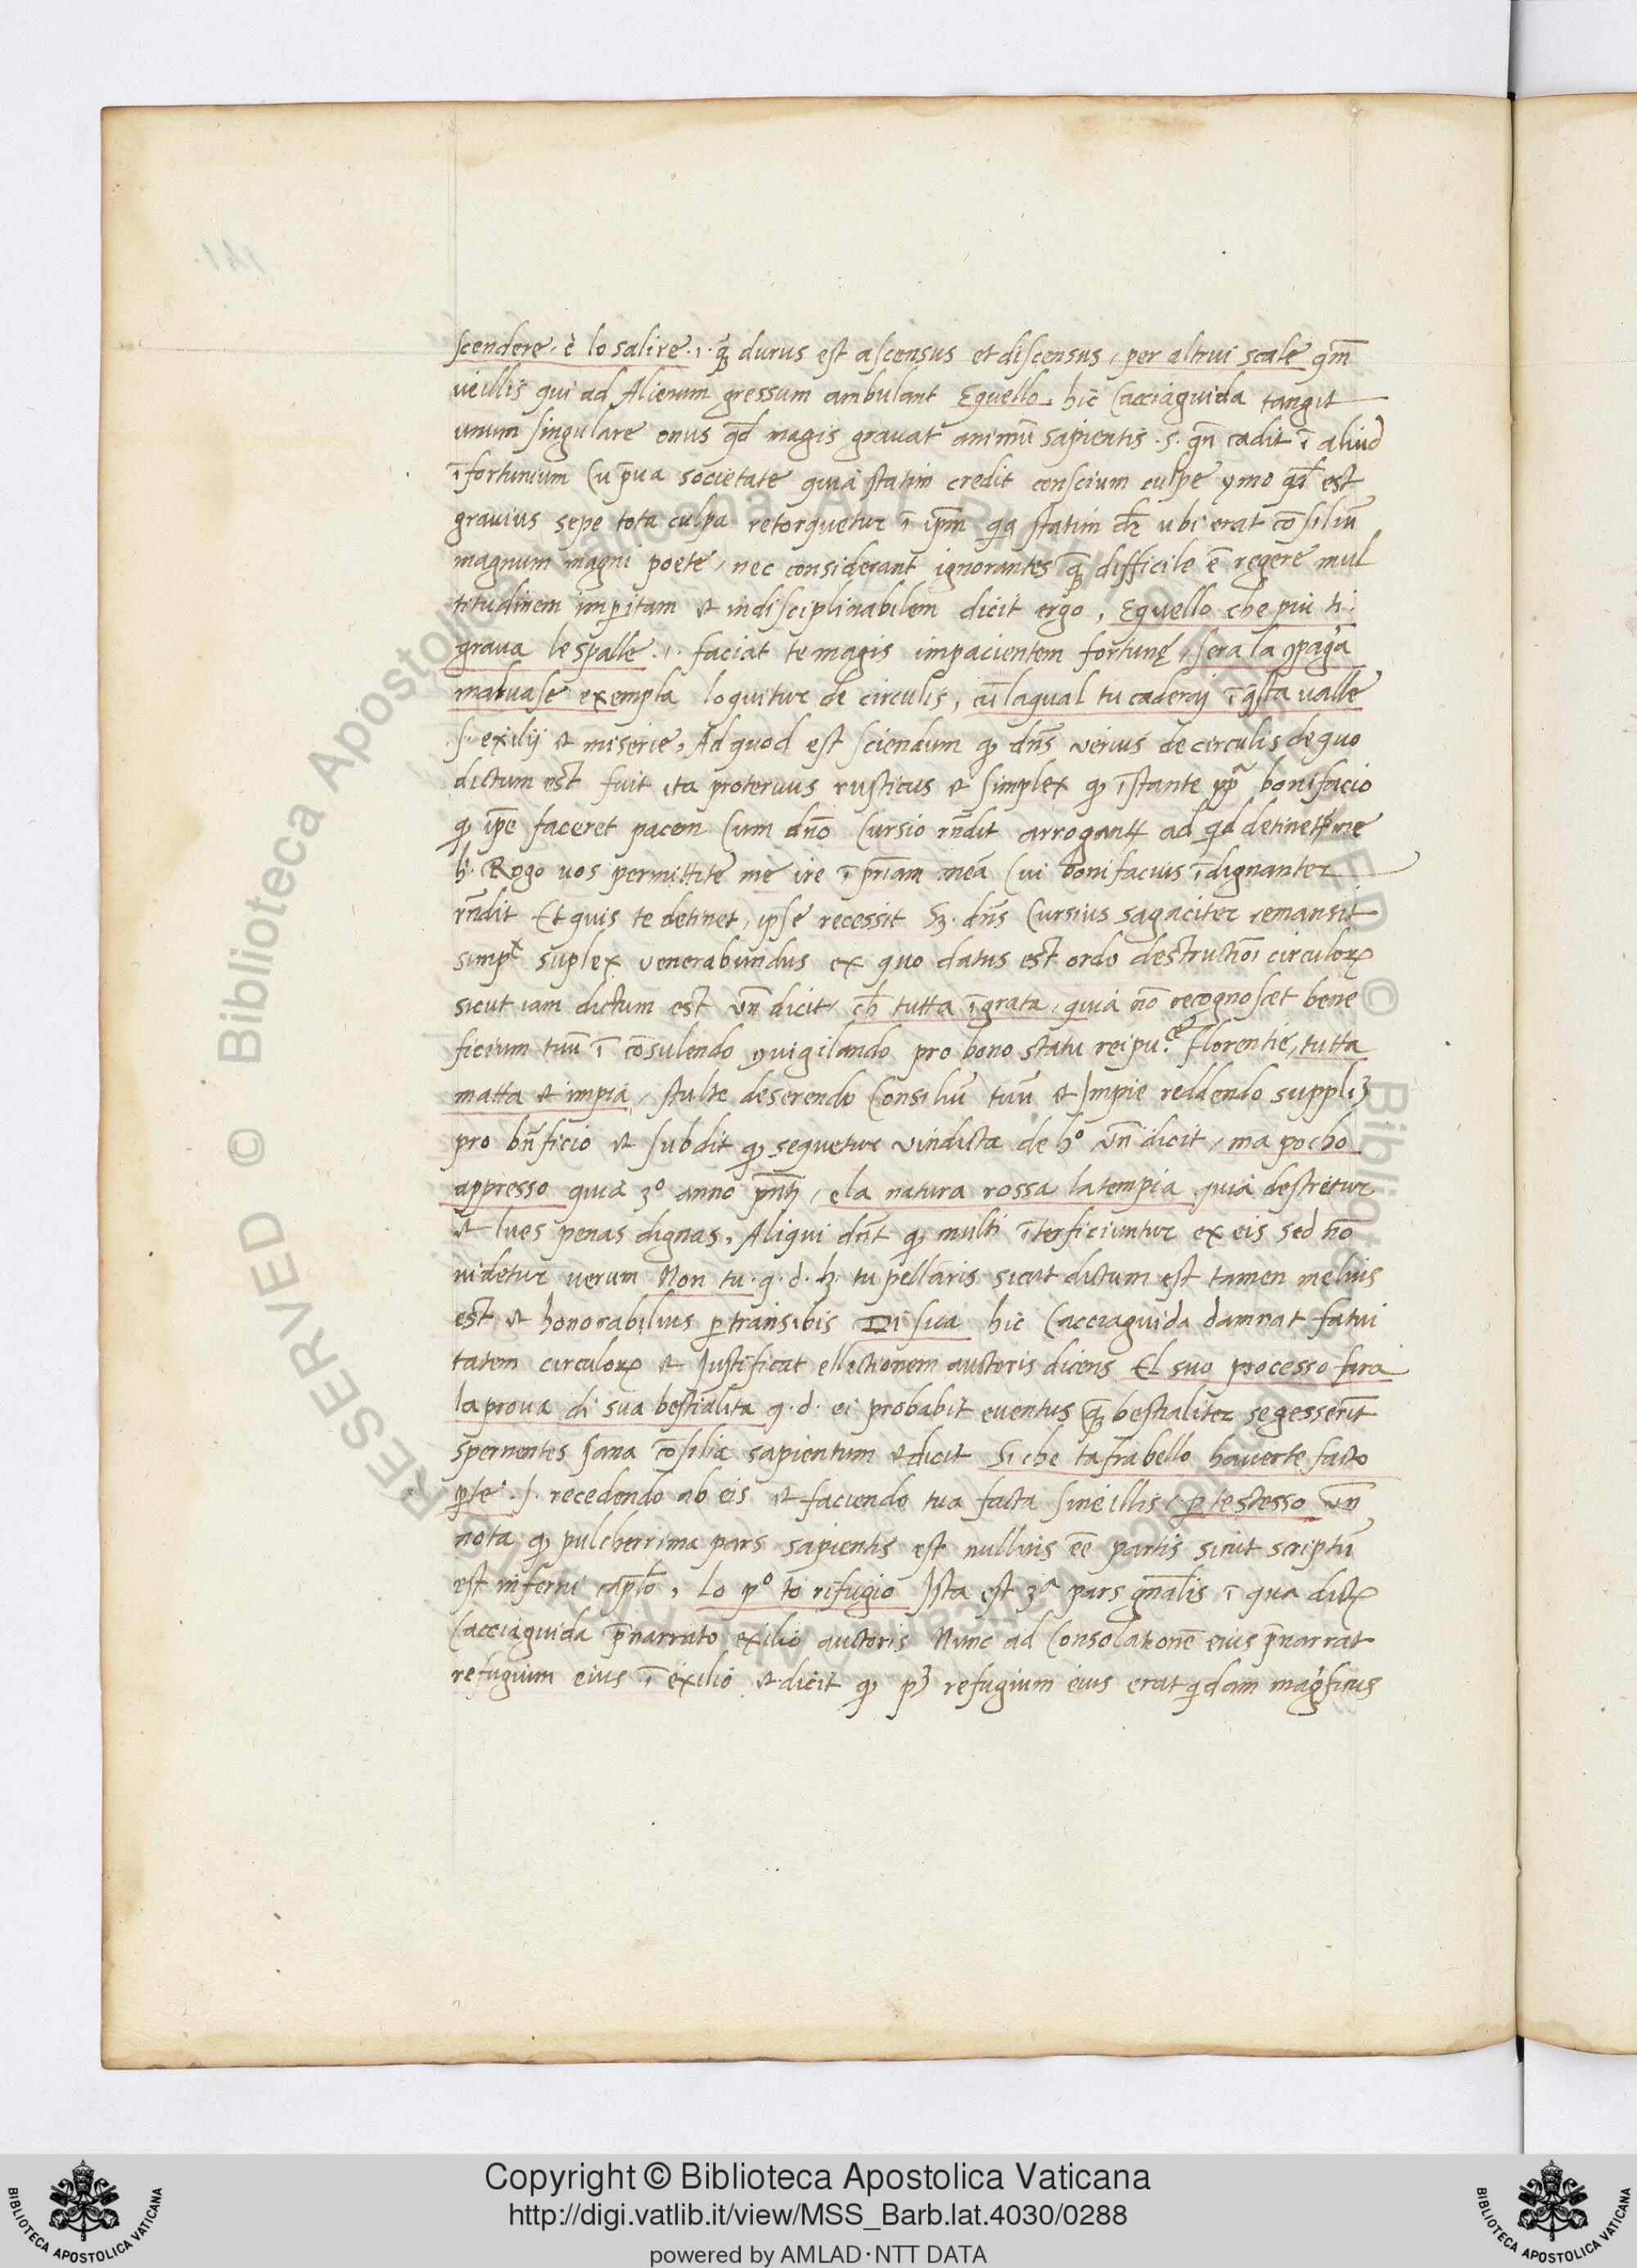 scendere, è lo salire .ı. qȝ durus est ascensus et discensus, per altrui scale qm̄
ve illis qui ad Alienum gressum ambulant Equello. hic Cacciaguida tangit
unum singulare onus qd̄ magis gravat animū sapientis .s. qn̄ cadit ī aliud
īfortunium Cu p̄va societate quia statim credit conscium culpe ymo qd̄ est
gravius sepe tota culpa retorquetur ī ip̄m qa statim dr̄ ubi erat cōsiliū
magnum magni poete, nec considerant ignorantes qȝ difficile ē regere mul
titudinem imperitam et indisciplinabilem dicit ergo, Equello che più ti
grava le spalle .ı. faciat te magis impacientem fortunę, sera la ꝯpag̃a
malvase exempla loquitur de circulis, cū laqual tu caderaj ī q̄sta valle
.s. exilij et miserie, Ad quod est sciendum ꝙ dn̄s verius de circulis de quo
dictum est fuit ita protervus rusticus et simplex ꝙ īstante pp̄ª bonifacio
ꝙ ip̄e faceret pacem Cum dn̄o Cursio rn̄dit arrogant̄ ad qd detinetꝭ me
h̄. Rogo vos permittite me ire ī pr̄iam meā Cui bonifacius īdignanter
rn̄dit Et quis te detinet, ipse recessit Sȝ. dn̄s Cursius sagaciter remansit
simpˣ suplex venerabundus ex quo datus est ordo destructiōı circuloꝝ
sicut iam dictum est vn̄ dicit, ch̄ tutta īgrata, quia nō recognoscet bene
ficium tuū ī cōsulendo ꝯvigilando pro bono statu reipu.ce Florentie, tutta
matta et impia, stulte deserendo Consiliū tuū et Impie reddendo suppliȝ
pro bn̄ficio et subdit ꝙ sequetur vindicta de hº vn̄ dicit, ma pocho
appresso quia 3º anno pn̄tj, ela natura rossa la tempia quia destretur
et lues penas dignas, Aliqui dn̄t ꝙ multi īterficiuntur ex eis sed nō
videtur verum Non tu .q.d. hȝ tu pellaris sicut dictum est tamen melius
est et honorabilius ꝑtransibis Di sua hic Cacciaguida damnat fatui
tatem circuloꝝ et Justificat ellectionem auctoris dicens El suo processo fara
la prova di sua bestialita q.d. ei probabit eventus qȝ bestialiter se gesserīt
spernentes sana cōsilia sapientum et dicit Si che ta fra bello haverte facto
ꝑte .s. recedendo ab eis et faciendo tua facta sine illis, ꝑ te stesso vn̄
nota ꝙ pulcherrima pars sapientis est nullius eē partis sicut scriptū
est inferni cap̄lo, Lo pº to rifugio Ista est 3ª pars gn̄alis ī qua dictꝰ
Cacciaguida p̄narrato exilio auctoris Nunc ad Consolationē eius p̄narrat
refugium eius ī exilio et dicit ꝙ pȝ refugium eius erat qidam mag̃ficus
Copyright © Biblioteca Apostolica Vaticana
http://digi.vatlib.it/view/MSS_Barb.lat.4030/0288
powered by AMLAD·NTT DATA
BIBLIOTECA APOSTOLICA VATICANA
BIBLIOTECA APOSTOLICA VATICANA